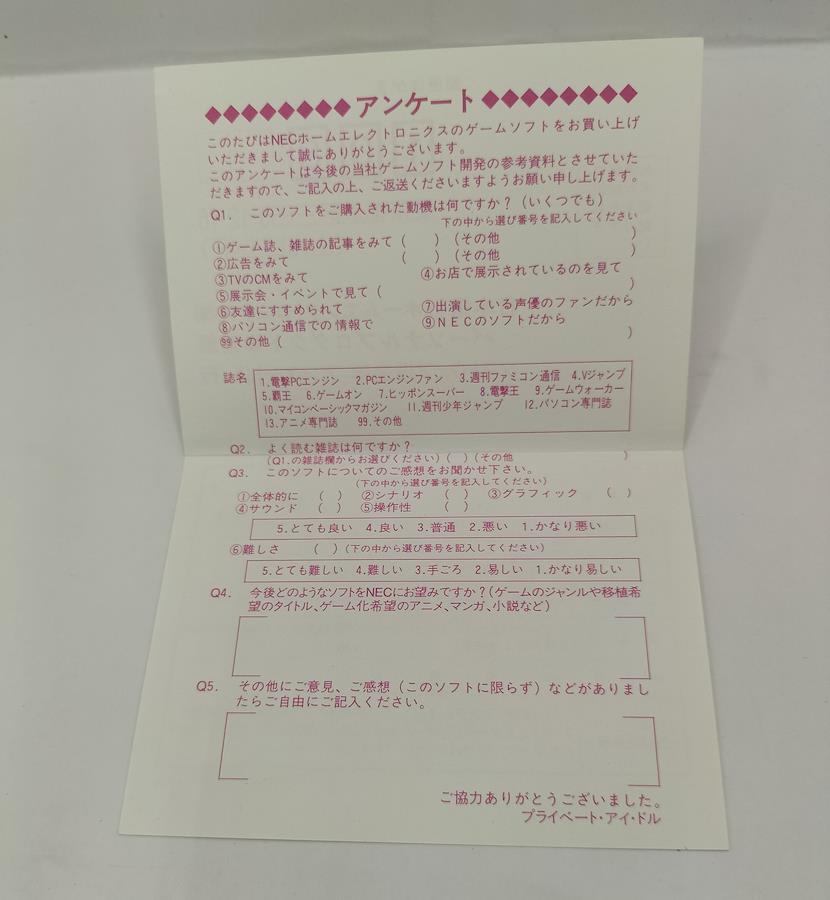 ◆◆◆◆◆◆◆◆アンケート◆◆◆◆◆◆◆◆
このたびはNECホームエレクトロニクスのゲームソフトをお買い上げ
いただきまして誠にありがとうございます。
このアンケートは今後の当社ゲームソフト開発の参考資料とさせていた
だきますので、ご記入の上、ご返送くださいますようお願い申し上げます。
Q1. このソフトをご購入された動機は何ですか？（いくつでも）
下の中から選び番号を記入してください
①ゲーム誌、雑誌の記事をみて（　　）（その他　　　　　　）
②広告をみて　　　　　　　　（　　）（その他　　　　　　）
③TVのCMをみて　　④お店で展示されているのを見て
⑤展示会・イベントで見て（　　　　　　　　　　）
⑥友達にすすめられて　　⑦出演している声優のファンだから
⑧パソコン通信での情報で　　⑨NECのソフトだから
99その他（　　　　　　　　　　　　　　　　　）
誌名
1.電撃PCエンジン　2.PCエンジンファン　3.週刊ファミコン通信　4.Vジャンプ
5.覇王　6.ゲームオン　7.ヒッポンスーパー　8.電撃王　9.ゲームウォーカー
10.マイコンベーシックマガジン　11.週刊少年ジャンプ　12.パソコン専門誌
13.アニメ専門誌　99.その他
Q2. よく読む雑誌は何ですか？
（Q1.の雑誌欄からお選びください）（　）（その他　　　　　　　　）
Q3. このソフトについてのご感想をお聞かせ下さい。
（下の中から選び番号を記入してください）
①全体的に　（　）　②シナリオ　（　）　③グラフィック　（　）
④サウンド　（　）　⑤操作性　　（　）
5.とても良い　4.良い　3.普通　2.悪い　1.かなり悪い
⑥難しさ　　（　）（下の中から選び番号を記入してください）
5.とても難しい　4.難しい　3.手ごろ　2.易しい　1.かなり易しい
Q4. 今後どのようなソフトをNECにお望みですか？（ゲームのジャンルや移植希
望のタイトル、ゲーム化希望のアニメ、マンガ、小説など）
Q5. その他にご意見、ご感想（このソフトに限らず）などがありまし
たらご自由にご記入ください。
ご協力ありがとうございました。
プライベート・アイ・ドル